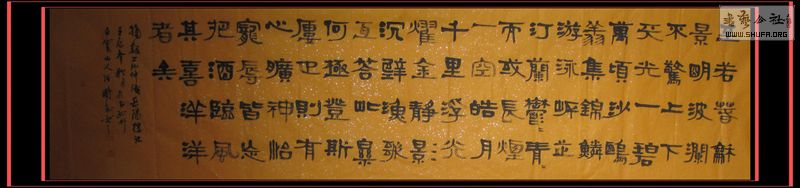 至若春龢
景明波瀾
不驚上下
天光一碧
萬頃沙鷗
翔集錦鱗
游泳岸芷
汀蘭鬱=青=
而或長煙
一空皓月
千里浮光
耀金靜影
沉璧漁歌
互答此樂
何極登斯
樓也則有
心曠神怡
寵辱皆忘
把酒臨風
其喜洋洋
者矣
摘録范仲淹岳陽樓記
WWW.SHUFA.ORG